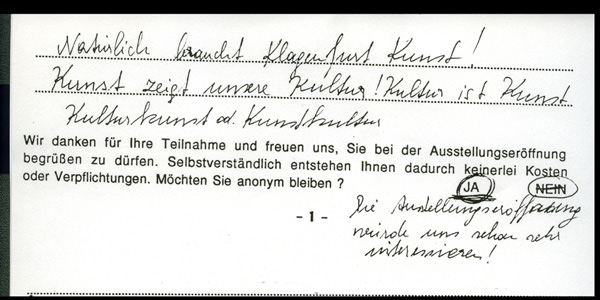 Natürlich braucht Klagenfurt Kunst!
Kunst zeigt unsere Kultur! Kultur ist Kunst
Kulturkunst od. Kunstkultur
Wir danken für Ihre Teilnahme und freuen uns, Sie bei der Ausstellungseröffnung
begrüßen zu dürfen. Selbstverständlich entstehen Ihnen dadurch keinerlei Kosten
oder Verpflichtungen. Möchten Sie anonym bleiben ? JA NEIN
- 1 -
Die Austellungseröffnung
würde uns schon sehr
interessieren!